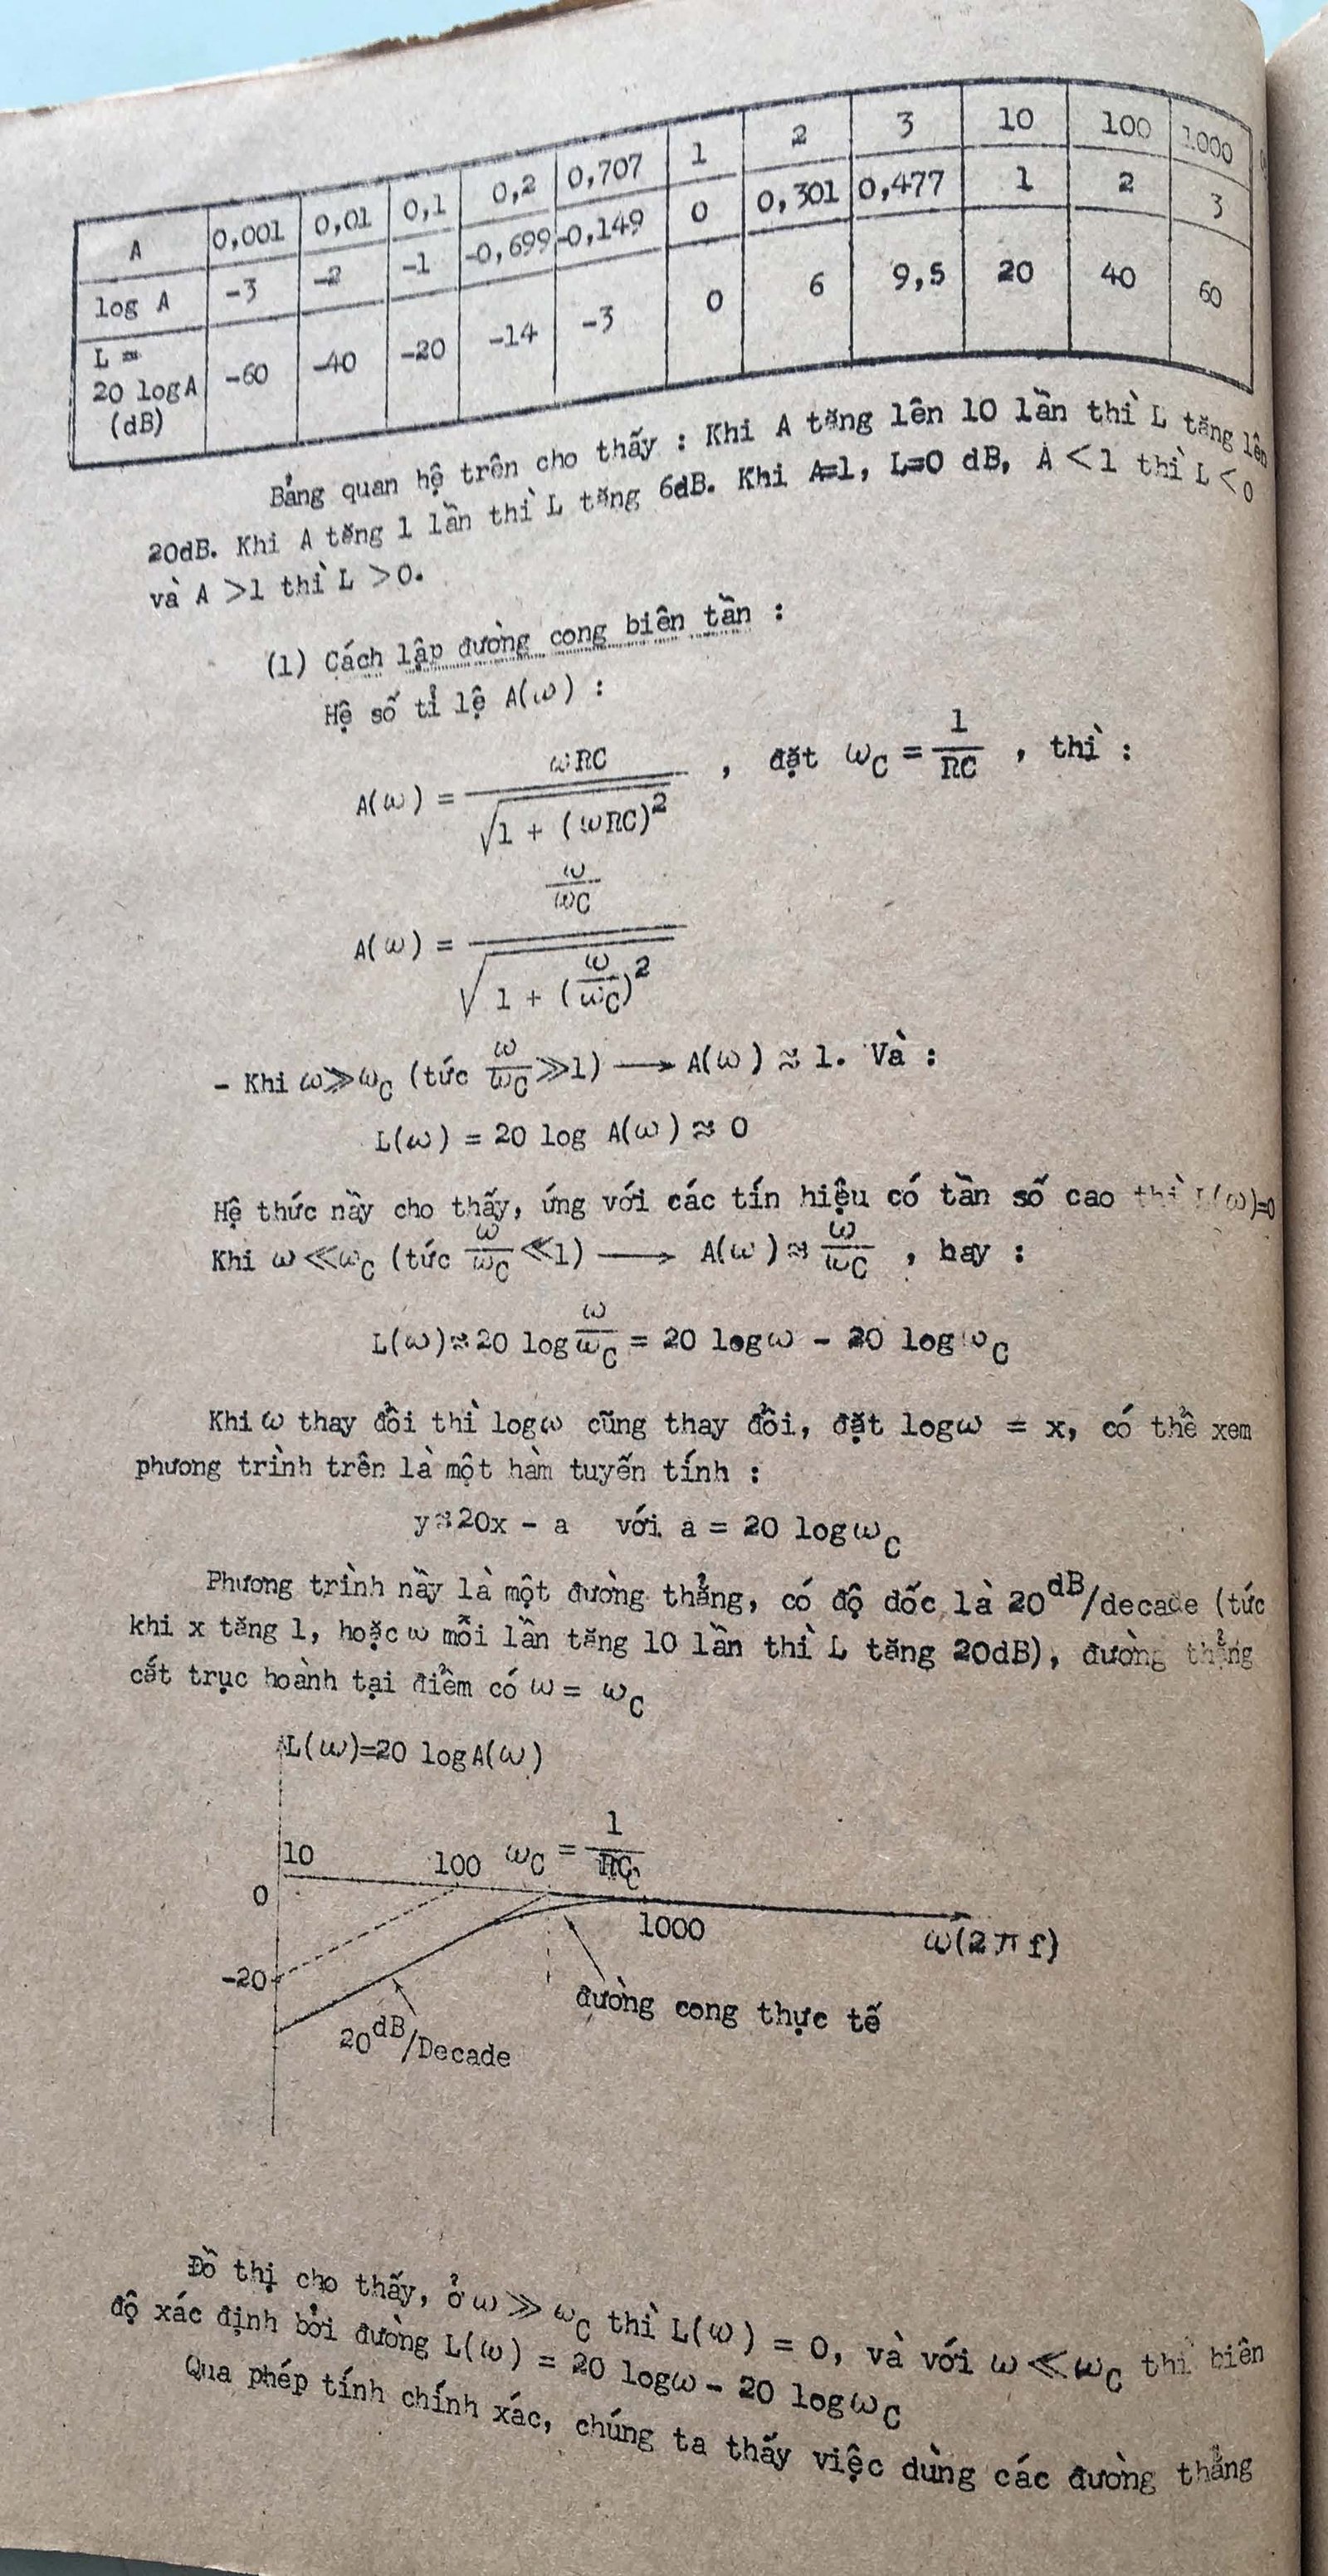 A 0,001 0,01 0,1 0,2 0,707 1 2 3 10 100 1000
log A -3 -2 -1 -0,699 -0,149 0 0,301 0,477 1 2 3
L = 20 logA (dB) -60 -40 -20 -14 -3 0 6 9,5 20 40 60
Bảng quan hệ trên cho thấy : Khi A tăng lên 10 lần thì L tăng lên
20dB. Khi A tăng 1 lần thì L tăng 6dB. Khi A=1, L=0 dB, A < 1 thì L < 0
và A >1 thì L >0.
(1) Cách lập đường cong biên tần :
Hệ số tỉ lệ A(ω) :
A(ω) = ωRC / √(1 + (ωRC)²) , đặt ω_C = 1/RC , thì :
A(ω) = (ω/ω_C) / √(1 + (ω/ω_C)²)
- Khi ω≫ω_C (tức ω/ω_C ≫1) ⟶ A(ω) ≈ 1. Và :
L(ω) = 20 log A(ω) ≈ 0
Hệ thức nầy cho thấy, ứng với các tín hiệu có tần số cao thì L(ω)=0
Khi ω ≪ω_C (tức ω/ω_C ≪1) ⟶ A(ω) ≈ ω/ω_C , hay :
L(ω)≈20 log ω/ω_C = 20 logω - 20 logω_C
Khi ω thay đổi thì logω cũng thay đổi, đặt logω = x, có thể xem
phương trình trên là một hàm tuyến tính :
y≈20x - a với a = 20 logω_C
Phương trình nầy là một đường thẳng, có độ dốc là 20dB/decade (tức
khi x tăng 1, hoặc ω mỗi lần tăng 10 lần thì L tăng 20dB), đường thẳng
cắt trục hoành tại điểm có ω = ω_C
L(ω)=20 logA(ω)
10 100 ω_C = 1/RC
0
1000
ω(2πf)
-20
đường cong thực tế
20dB/Decade
Đồ thị cho thấy, ở ω≫ ω_C thì L(ω) = 0, và với ω ≪ω_C thì biên
độ xác định bởi đường L(ω) = 20 logω - 20 logω_C
Qua phép tính chính xác, chúng ta thấy việc dùng các đường thẳng